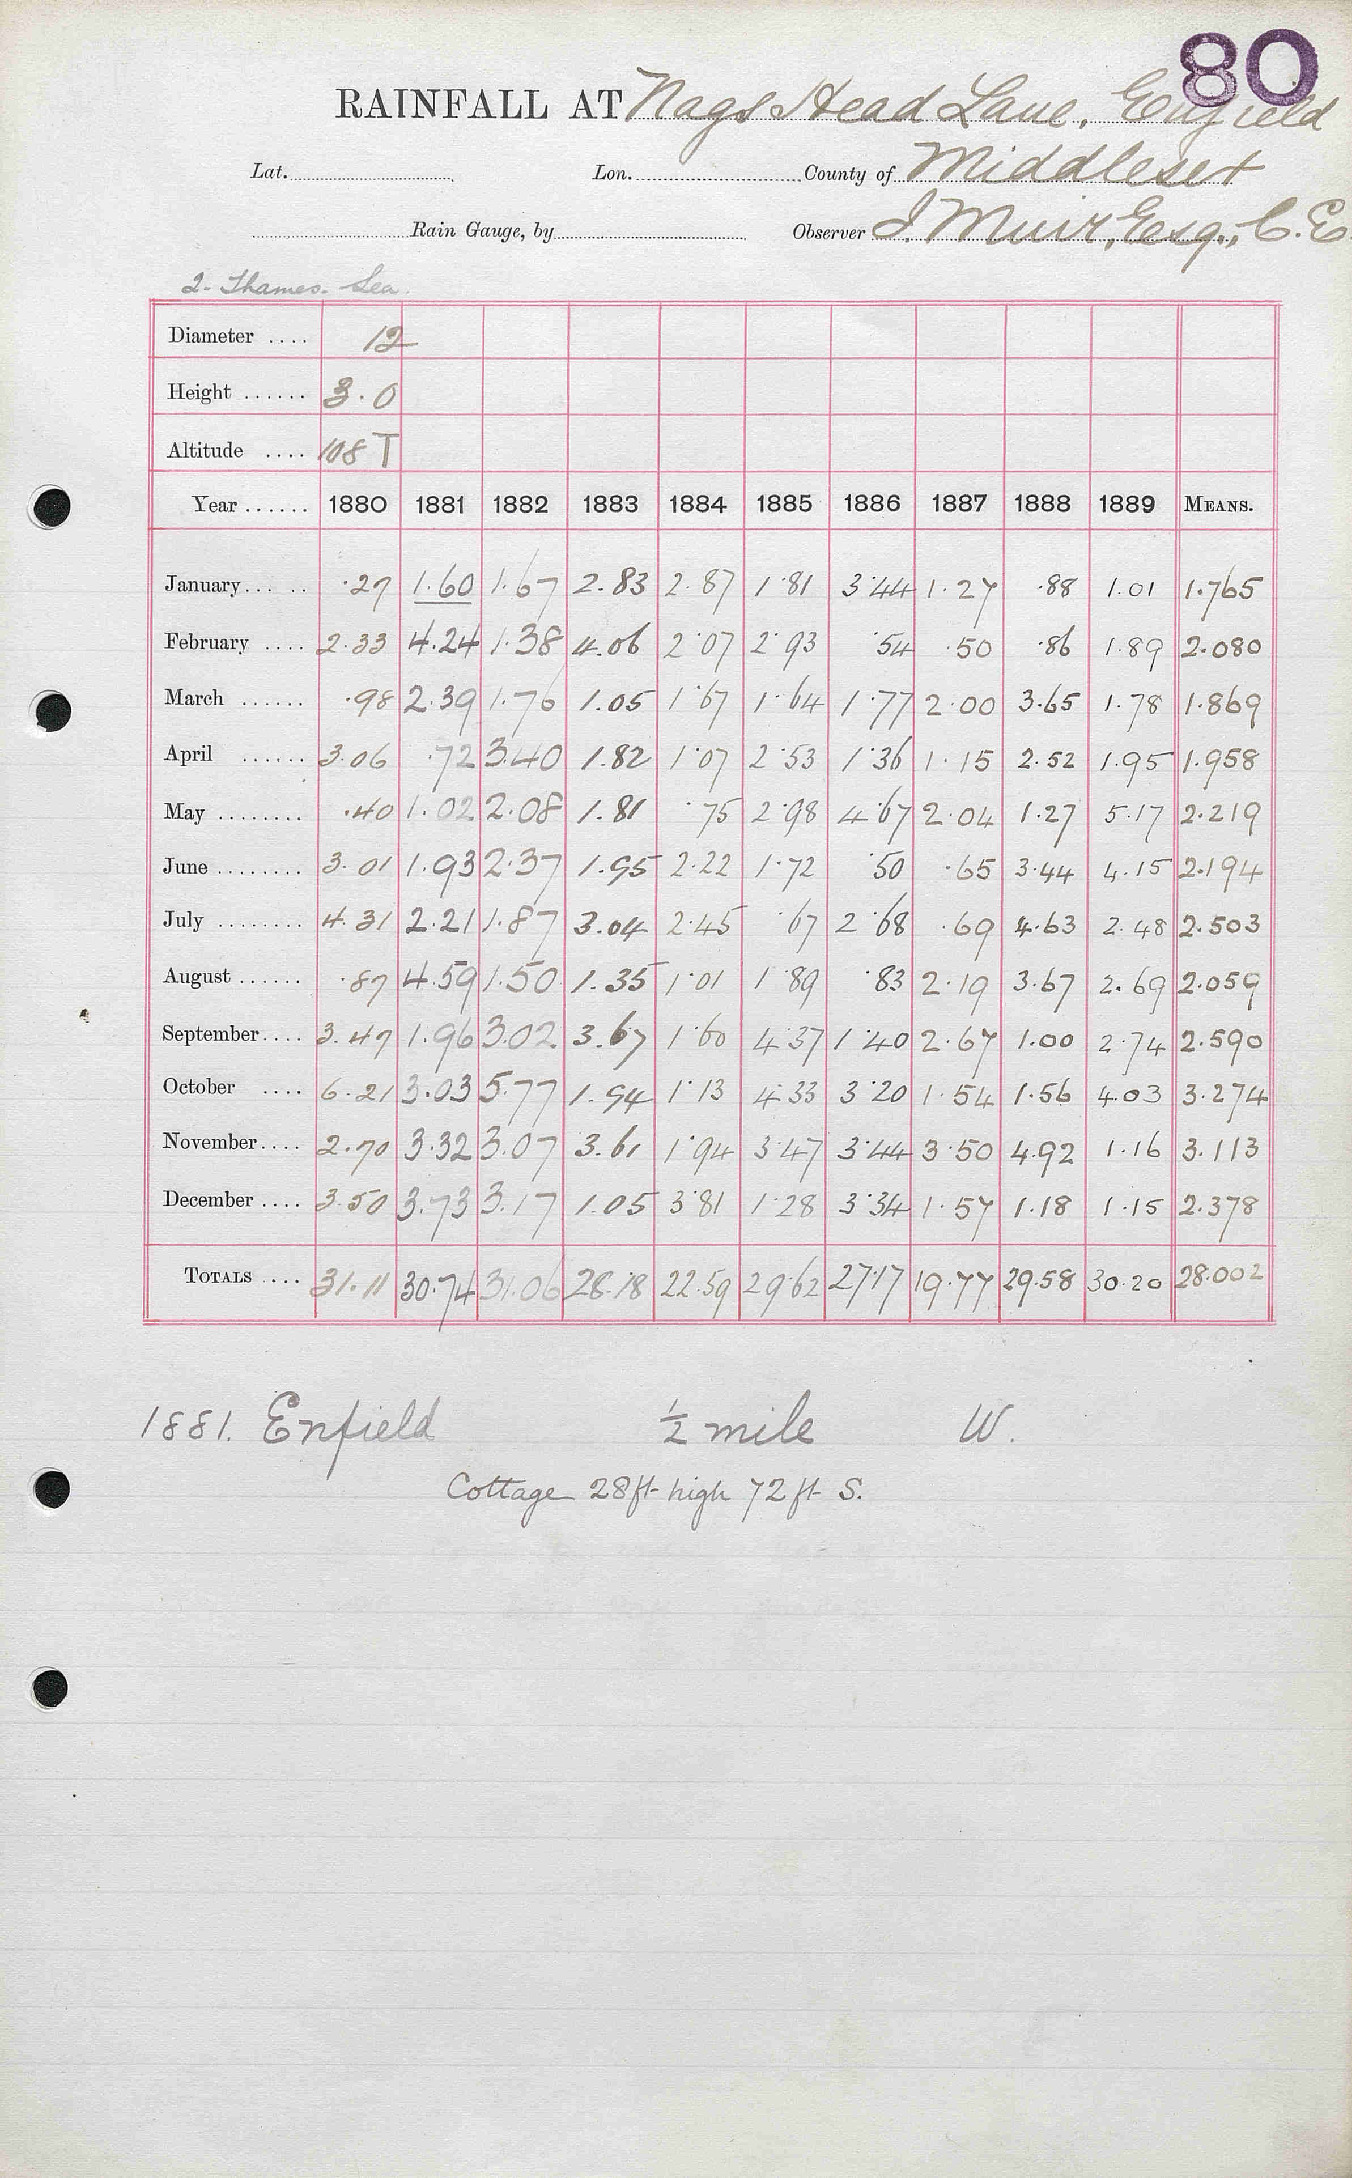 80
RAINFALL AT Nags Head Lane, Enfield
Lat. Lon. County of Middlesex
Rain Gauge, by Observer J. Muir, Esq., C.E.
2. Thames-Lea.
Diameter .... 12
Height ...... 3.0
Altitude .... 108 T
Year ...... 1880 1881 1882 1883 1884 1885 1886 1887 1888 1889 MEANS.
January ... .. .27 1.60 1.67 2.83 2.87 1.81 3.44 1.27 .88 1.01 1.765
February .... 2.33 4.24 1.38 4.06 2.07 2.93 .54 .50 .86 1.89 2.080
March ...... .98 2.39 1.76 1.05 1.67 1.64 1.77 2.00 3.65 1.78 1.869
April ...... 3.06 .72 3.40 1.82 1.07 2.53 1.36 1.15 2.52 1.95 1.958
May ........ .40 1.02 2.08 1.81 .75 2.98 4.67 2.04 1.27 5.17 2.219
June ........ 3.01 1.93 2.37 1.95 2.22 1.72 .50 .65 3.44 4.15 2.194
July ........ 4.31 2.21 1.87 3.04 2.45 .67 2.68 .69 4.63 2.48 2.503
August ...... .87 4.59 1.50 1.35 1.01 1.89 .83 2.19 3.67 2.69 2.059
September .... 3.47 1.96 3.02 3.67 1.60 4.37 1.40 2.67 1.00 2.74 2.590
October .... 6.21 3.03 5.77 1.94 1.13 4.33 3.20 1.54 1.56 4.03 3.274
November .... 2.70 3.32 3.07 3.61 1.94 3.47 3.44 3.50 4.92 1.16 3.113
December .... 3.50 3.73 3.17 1.05 3.81 1.28 3.34 1.57 1.18 1.15 2.378
TOTALS .... 31.11 30.74 31.06 28.18 22.59 29.62 27.17 19.77 29.58 30.20 28.002
1881. Enfield ½ mile W.
Cottage 28 ft high 72 ft S.